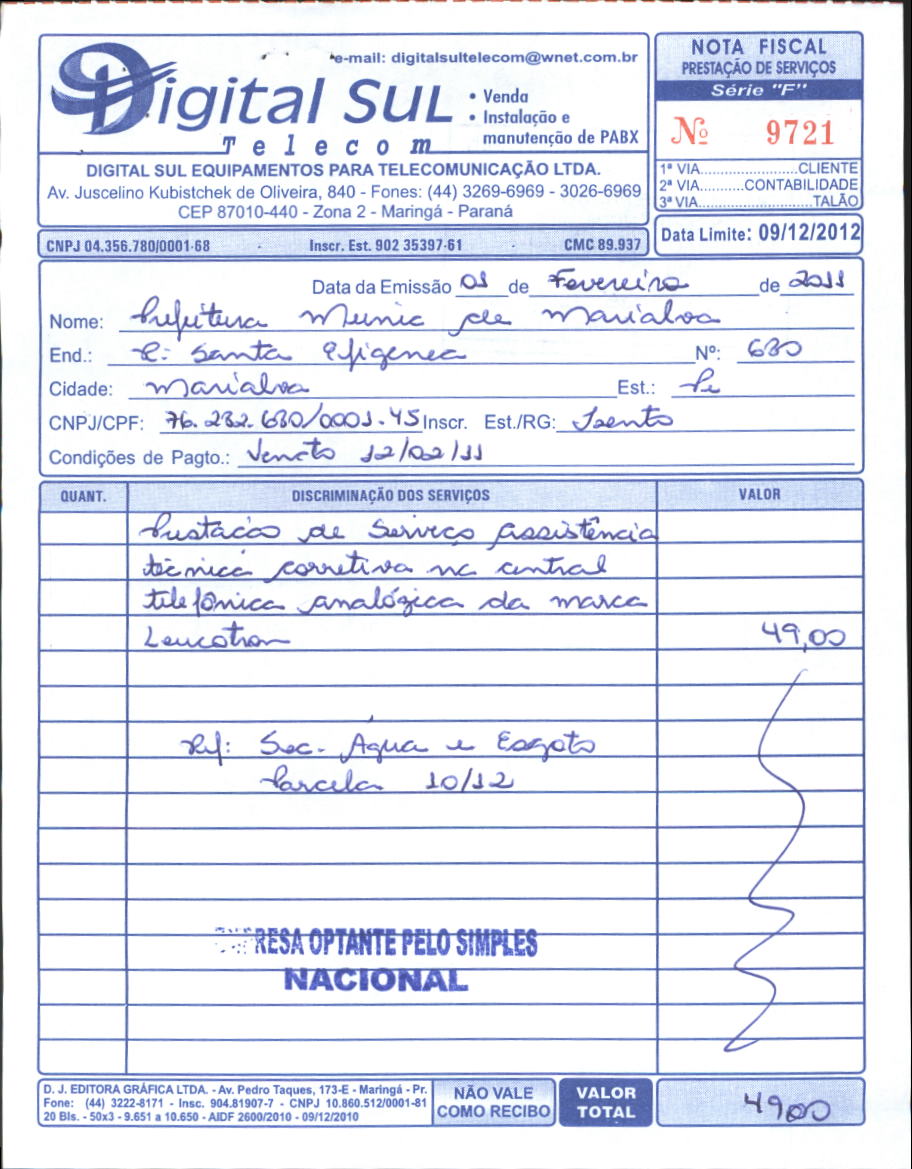 e-mail: digitalsultelecom@wnet.com.br
Digital Sul
Telecom
• Venda
• Instalação e
manutenção de PABX
DIGITAL SUL EQUIPAMENTOS PARA TELECOMUNICAÇÃO LTDA.
Av. Juscelino Kubistchek de Oliveira, 840 - Fones: (44) 3269-6969 - 3026-6969
CEP 87010-440 - Zona 2 - Maringá - Paraná
CNPJ 04.356.780/0001-68 Inscr. Est. 902 35397-61 CMC 89.937
NOTA FISCAL
PRESTAÇÃO DE SERVIÇOS
Série "F"
Nº 9721
1ª VIA.......................CLIENTE
2ª VIA..........CONTABILIDADE
3ª VIA..........................TALÃO
Data Limite: 09/12/2012
Data da Emissão 01 de Fevereiro de 2011
Nome: Prefeitura Munic de Marialva
End.: R: Santa Efigenea Nº: 680
Cidade: Marialva Est.: Pr
CNPJ/CPF: 76.282.680/0001-45 Inscr. Est./RG: Isento
Condições de Pagto.: Vencto 12/02/11
QUANT. DISCRIMINAÇÃO DOS SERVIÇOS VALOR
Prestacão de Serviço assistência
técnica corretiva na central
telefônica analógica da marca
Leucotron 49,00
Ref: Sec. Agua e Esgoto
Parcela 10/12
RESA OPTANTE PELO SIMPLES
NACIONAL
D. J. EDITORA GRÁFICA LTDA. - Av. Pedro Taques, 173-E - Maringá - Pr.
Fone: (44) 3222-8171 - Insc. 904.81907-7 - CNPJ 10.860.512/0001-81
20 Bls. - 50x3 - 9.651 a 10.650 - AIDF 2600/2010 - 09/12/2010
NÃO VALE
COMO RECIBO
VALOR
TOTAL
4900